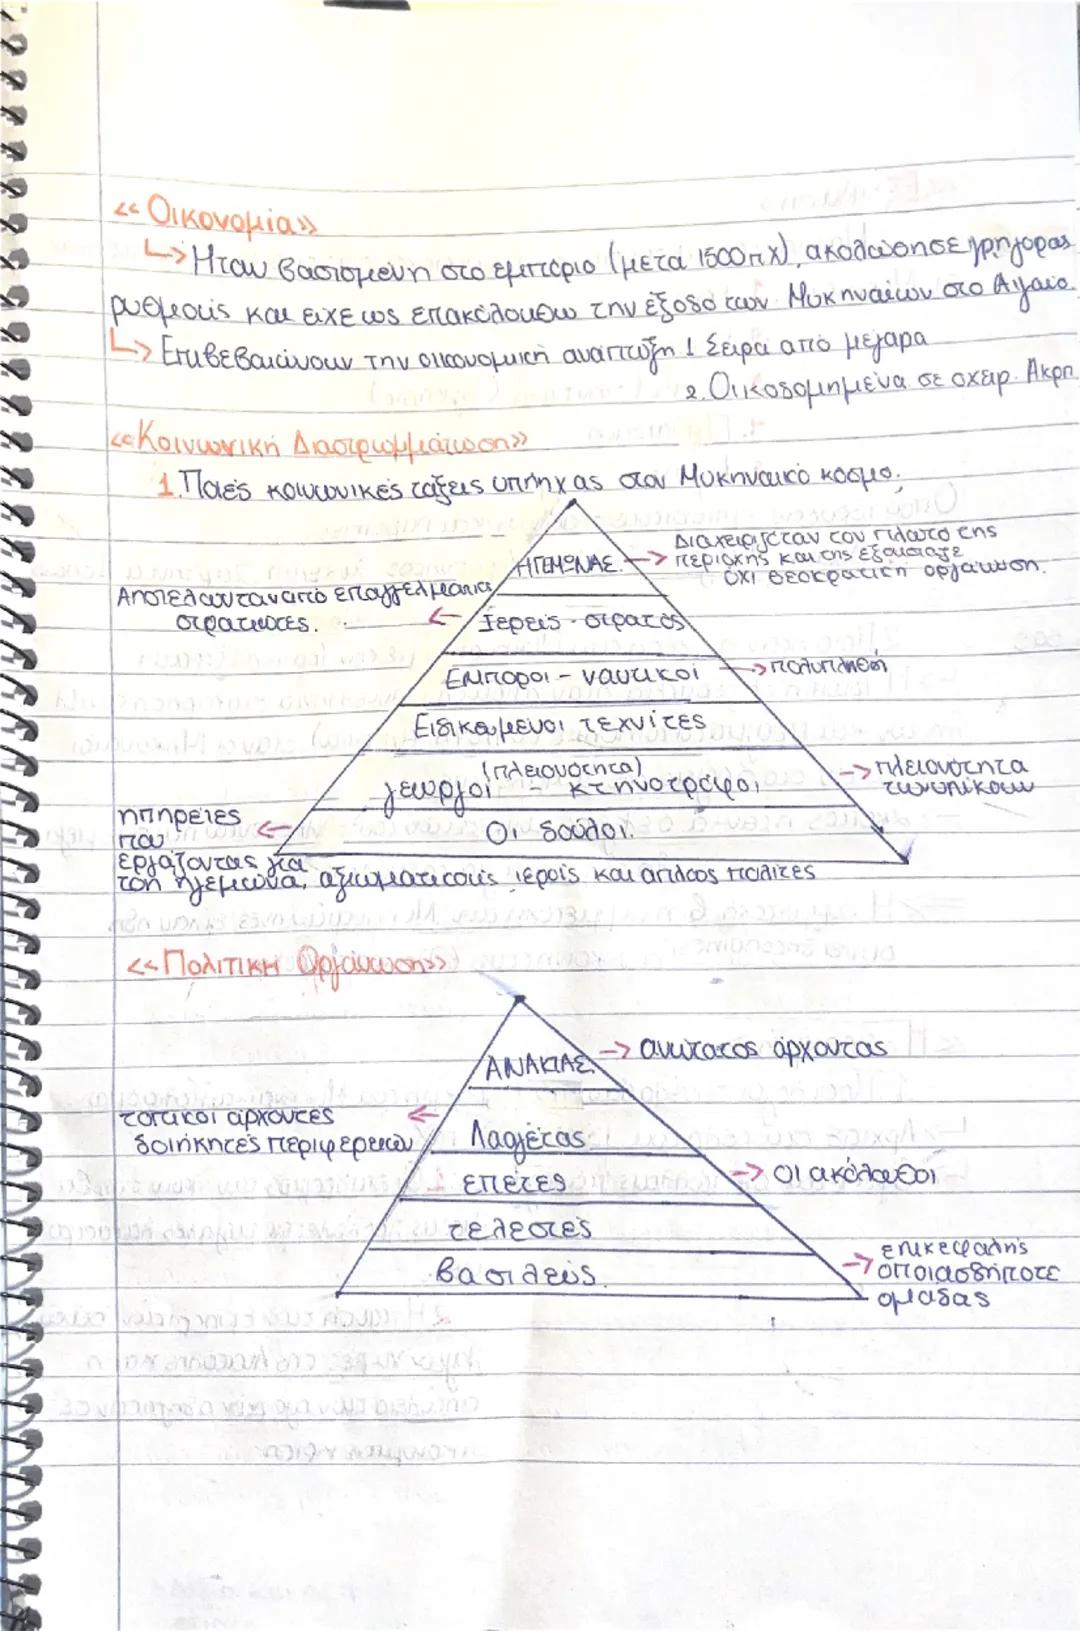 <<Οικονομία>>
↳Ηταν βασισμένη στο εμπόριο (μετά 1500πΧ), ακολούθησε γρήγορας
ρυθμούς και είχε ως επακόλουθω την έξοδο των Μυκηναίων στο Αιγαίο.
↳Επιβεβαιώνουν την οικονομική ανάπτυξη 1. Σειρά από μέγαρα
2. Οικοδομημένα σε οχυρ. Ακρπ.
<<Κοινωνική Διαστρωμμάτωση>>
1. Ποιές κοινωνικές τάξεις υπήηχας στον Μυκηναικό κοσμο.
ΗΓΕΜΟΝΑΣ. → Διαχειριζόταν τον πλούτο της
περιοχής και της εξουσίας
όχι θεοκρατική οργάνωση.
Αποτελούνταν από επαγγελματίες
στρατιώτες. ← Ιερείς - στρατός
Εμποροι - ναυτικοί → πολυπληθή
Ειδικευμένοι τεχνίτες
(πλειονότητα)
γεωργοί - κτηνοτρόφοι → πλειονότητα
των υπηκόων
υπηρέτες
που ← Οι δούλοι.
εργάζοντας για
τον ηγεμώνα, αξιωματούχους ιερείς και απλους πολίτες
<<Πολιτική Οργάνωση>>
ΑΝΑΚΤΑΣ. → ανώτατος άρχοντας
τοπικοί άρχοντες
διοικητές περιφερειών ← Λαγέτας
επέτες → οι ακόλουθοι
τελεστές
βασιλεύς. → επικεφαλής
οποιασδήποτε
ομάδας